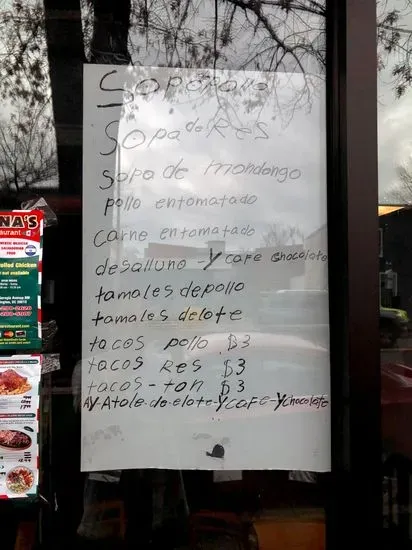 Sopopollo
Sopa de Res
sopa de mondongo
pollo entomatado
carne entomatado
desalluno - y cafe chocolate
tamales depollo
tamales delote
tacos pollo $3
tacos Res $3
tacos - ton $3
Ay-Atole-de-elote-y cafe-y chocolate
NA'S